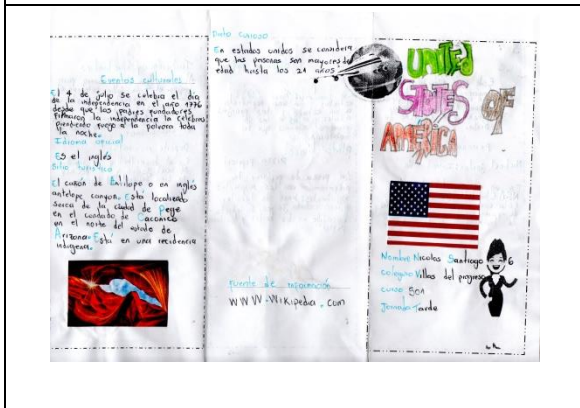 Eventos culturales
El 4 de julio se celebra el día
de la independencia en el año 1776
desde que los padres fundadores
firmaron la independencia la celebran
prendiendo fuego a la polvora toda
la noche.
Idioma oficial
Es el inglés
Sitio turístico
El cañón de Antílope o en inglés
antelope canyon. Está localizado
serca de la ciudad de Page
en el condado de Coconico
en el norte del estado de
Arizona. Está en una recidencia
indígena.
Dato curioso
En estados unidos se considera
que las presonas son mayores de
edad hasta los 21 años
fuente de información
WWW.Wikipedia.com
UNITED
STATES OF
AMERICA
Nombre Nicolas Santiago 6
colegio Villas del progreso
curso 501
Jornada tarde